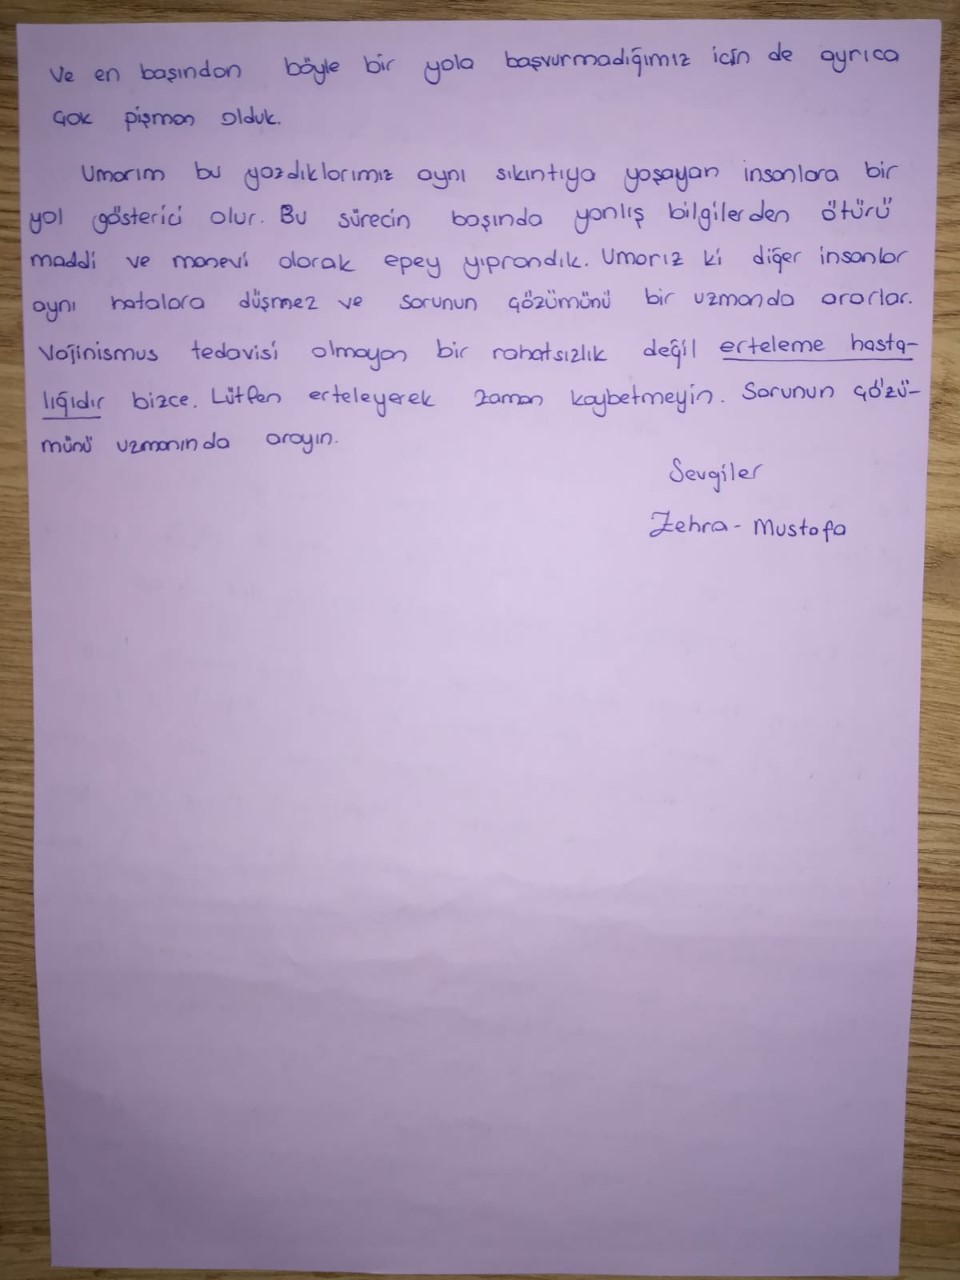 Ve en başından böyle bir yola başvurmadığımız için de ayrıca
çok pişman olduk.
Umarım bu yazdıklarımız aynı sıkıntıya yaşayan insanlara bir
yol gösterici olur. Bu sürecin başında yanlış bilgilerden ötürü
maddi ve manevi olarak epey yıprandık. Umarız ki diğer insanlar
aynı hatalara düşmez ve sorunun çözümünü bir uzmanda ararlar.
Vajinismus tedavisi olmayan bir rahatsızlık değil erteleme hasta-
lığıdır bizce. Lütfen erteleyerek zaman kaybetmeyin. Sorunun çözü-
münü uzmanında arayın.
Sevgiler
Zehra - Mustafa